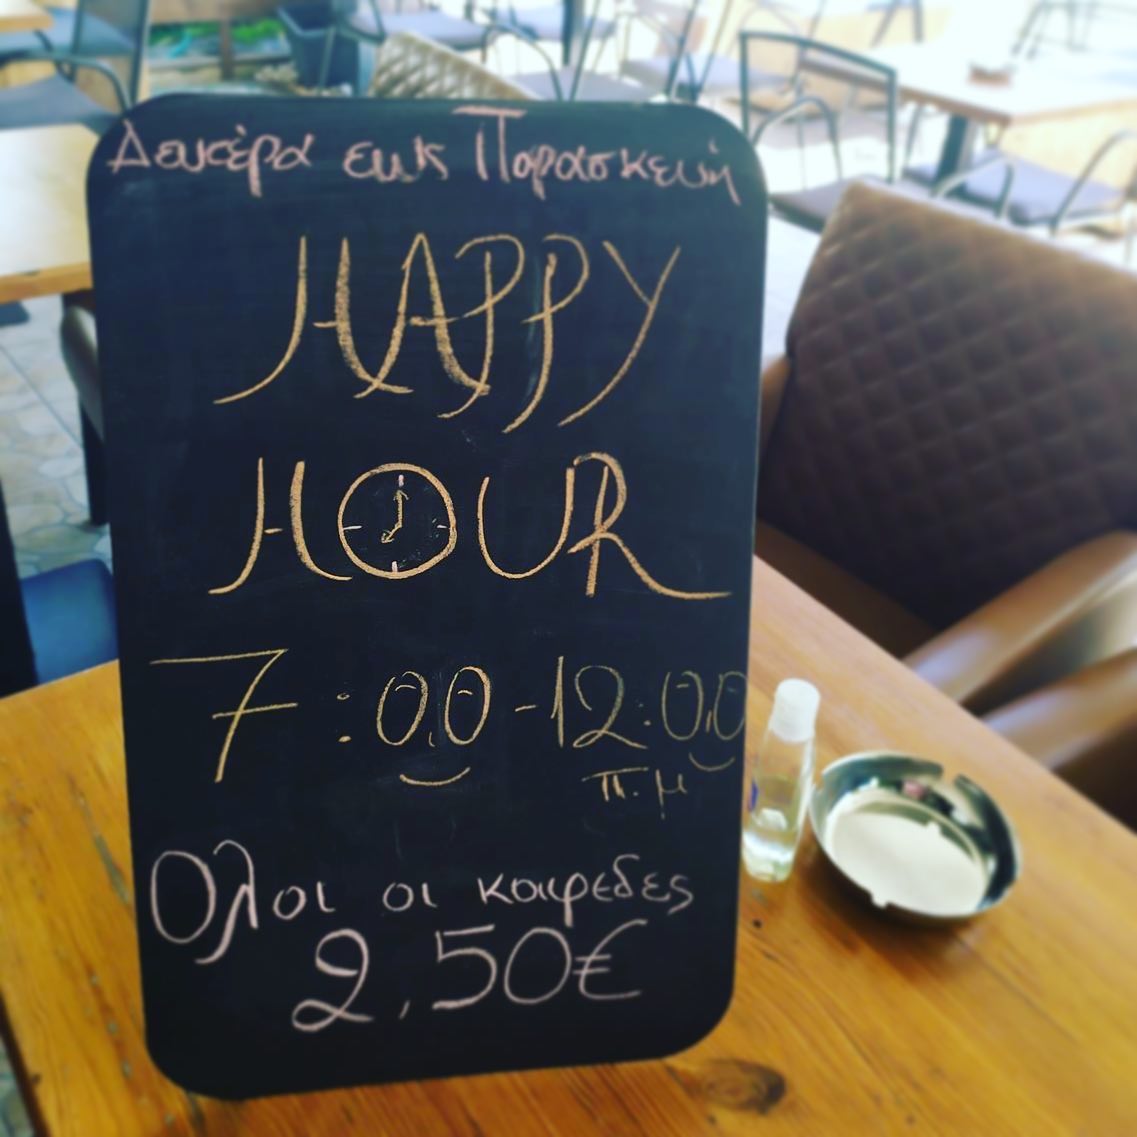 Δευτέρα εως Παρασκευή
HAPPY
HOUR
7:00-12:00
π.μ
Ολοι οι καφεδες
2,50€